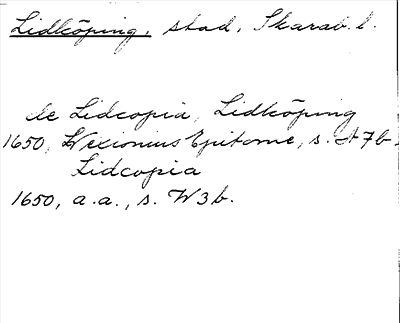 Lidköping, stad, Skarab. l.
de Lidcopia, Lidköping
1650, Wexionius Epitome, s. A 7 b.
Lidcopia
1650, a.a., s. W 3 b.